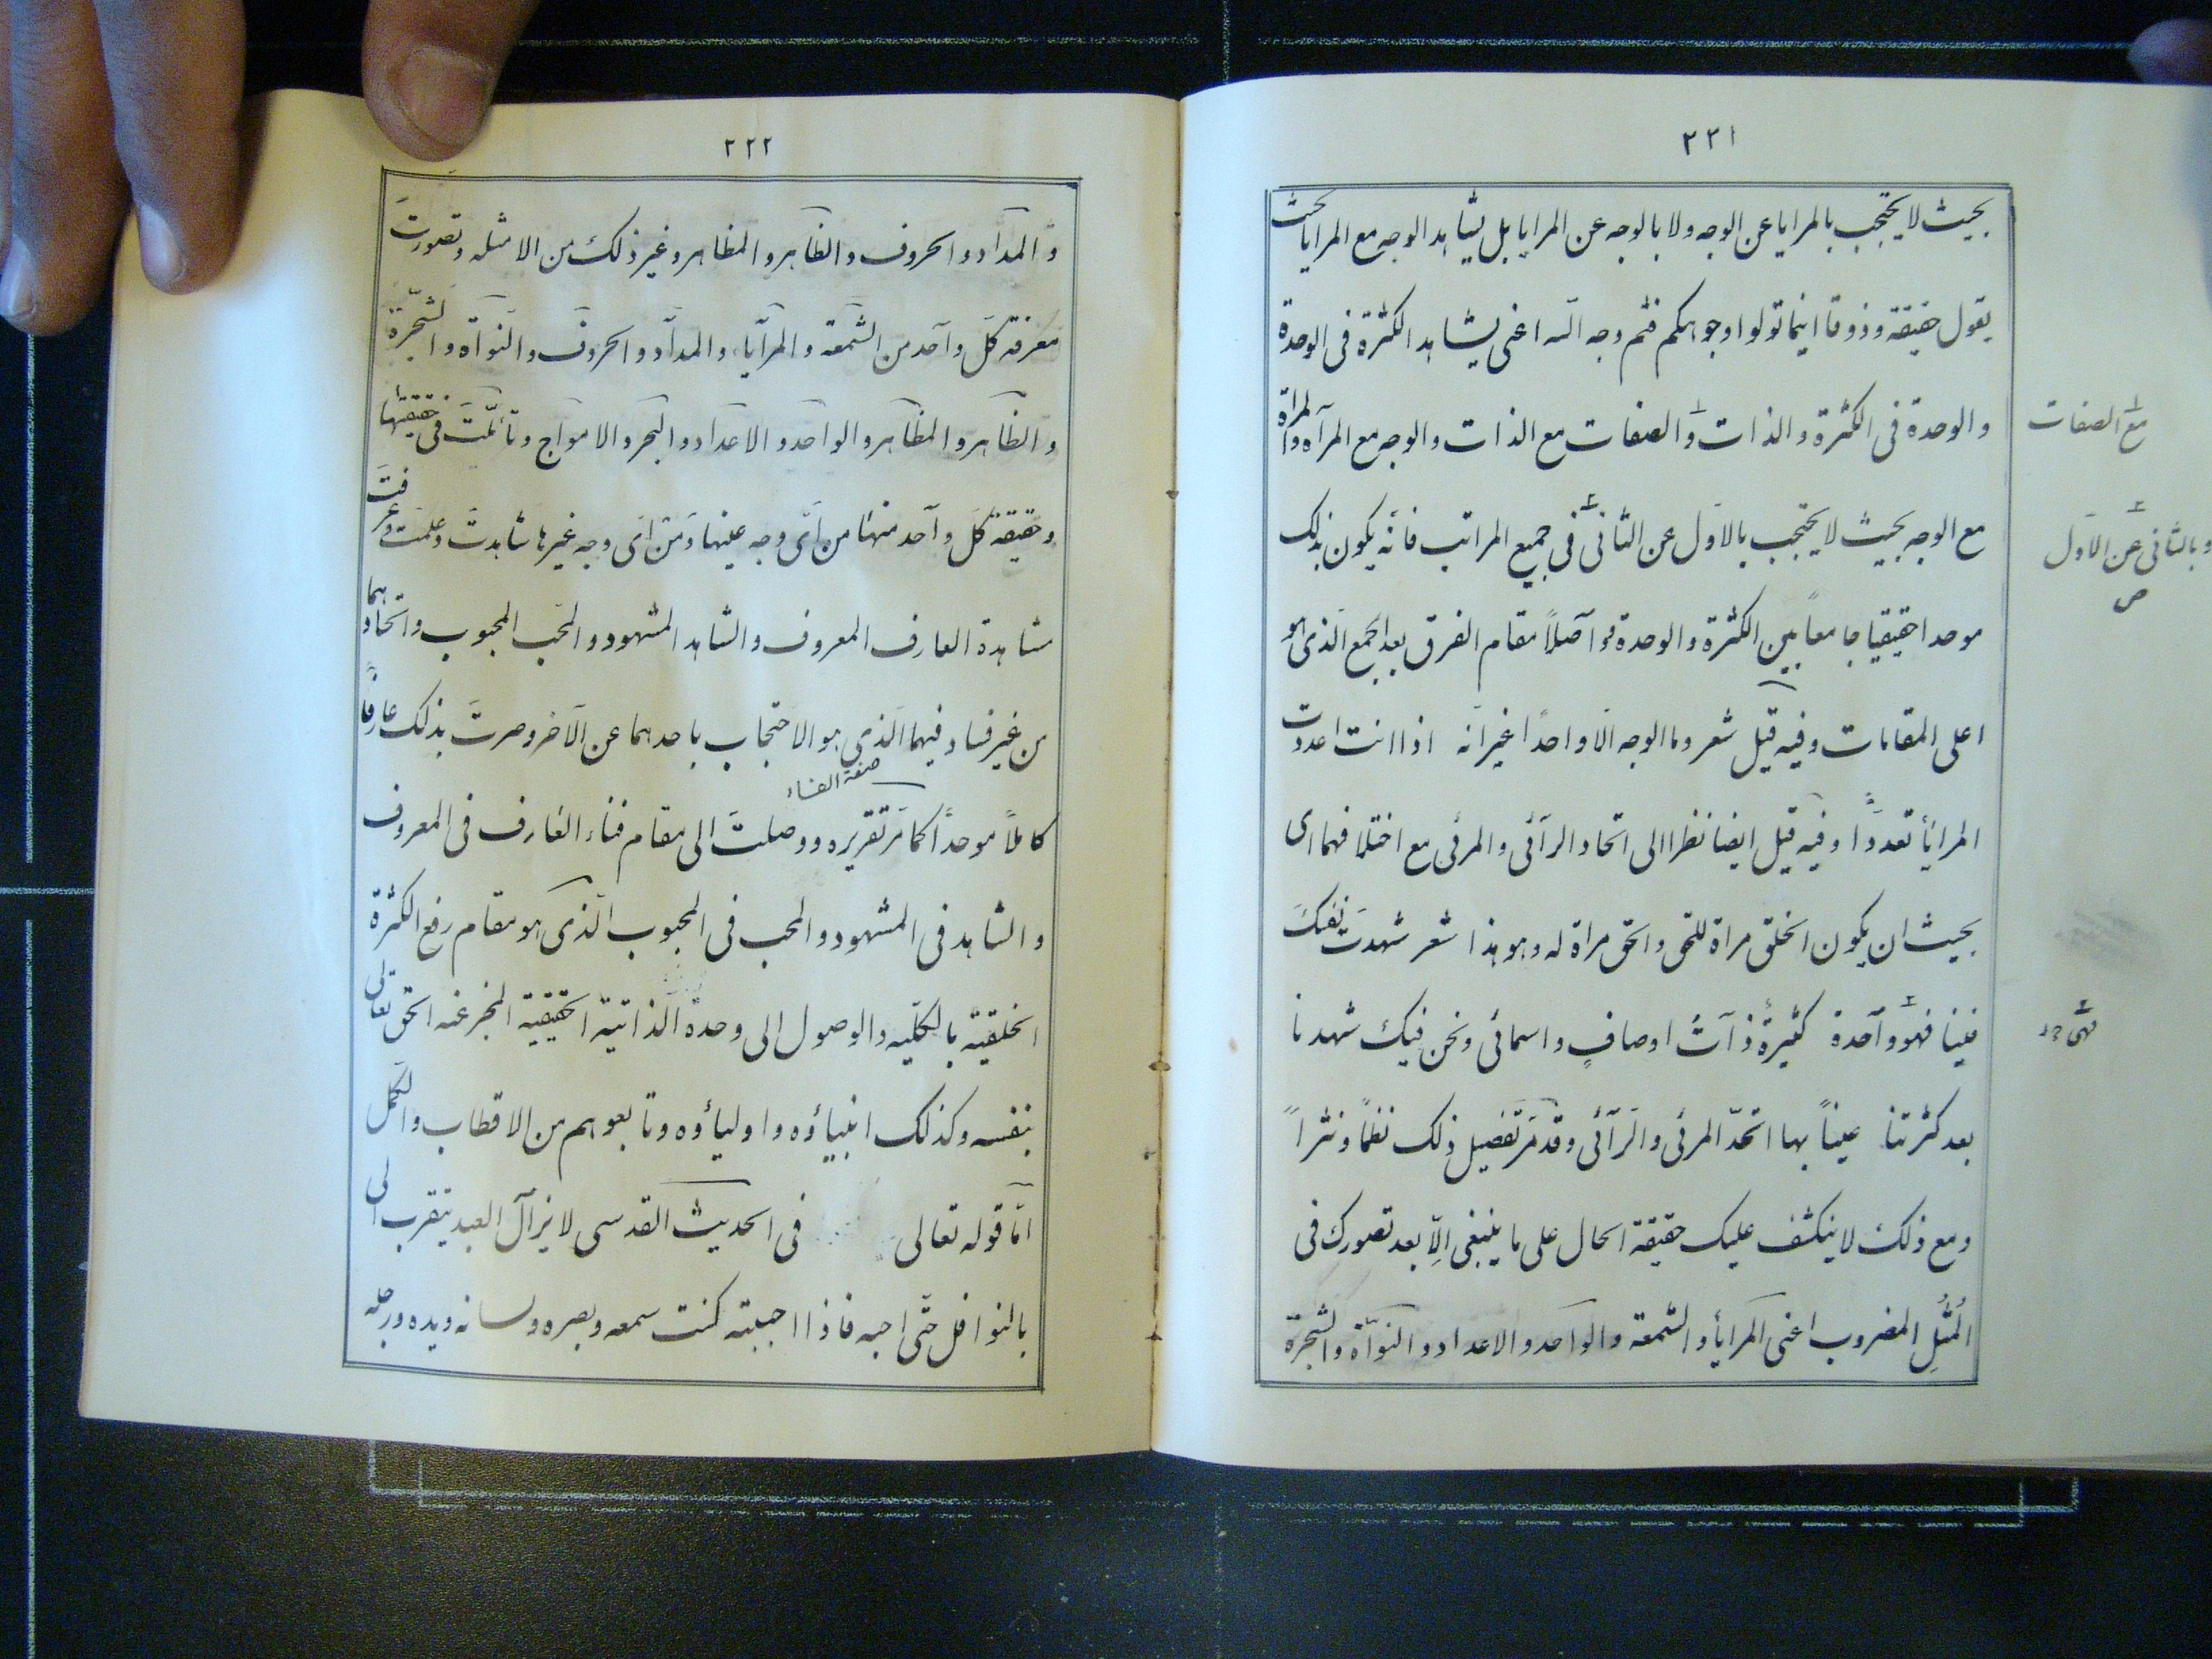 ٢٢١
بحيث لا يحتجب بالمرايا عن الوجه ولا بالوجه عن المرايا بل يشاهد الوجه مع المرايا بحيث
يقول حقيقة وذوقا اينما تولوا وجوهكم فثم وجه الله اعنى يشاهد الكثرة فى الوحدة
والوحدة فى الكثرة والذات والصفات مع الذات والوجه مع المرآه والمراة
مع الصفات
مع الوجه بحيث لا يحتجب بالاول عن الثانى فى جميع المراتب فانه يكون بذلك
وبالثانى عن الاول
ص
موحدا حقيقيا جامعاً بين الكثرة والوحدة واصلاً مقام الفرق بعد الجمع الذى هو
اعلى المقامات وفيه قيل شعر وما الوجه الا واحداً غير انه اذا انت اعددت
المرايا تعدداً وفيه قيل ايضا نظرا الى اتحاد الرآئى والمرئى مع اختلافهما اى
بحيث ان يكون الخلق مراة للحق والحق مراة له وهو هذا شعر شهدت نفسك
فينا فهو واحدة كثيرة ذات اوصافٍ واسمائى ونحن فيك شهدنا
فهى
بعد كثرتنا عيناً بها اتحد المرئى والرآئى وقد مر تفصيل ذلك نظماً ونثراً
ومع ذلك لا ينكشف عليك حقيقة الحال على ما ينبغى الا بعد تصورك فى
المُثُل المضروب اعنى المرايا والشمعة والواحد والاعداد والنواة والشجرة
٢٢٢
والمداد والحروف والظاهر والمظاهر وغير ذلك من الامثله وتصورت
معرفة كل واحد من الشمعة والمرايا والمداد والحروف والنواة والشجرة
والظاهر والمظاهر والواحد والاعداد والبحر والامواج وتأملت فى حقيقتها
وحقيقة كل واحد منها من اى وجه عينها ومن اى وجه غيرها شاهدت وعلمت وعرفت
مشاهدة العارف المعروف والشاهد المشهود والمحب المحبوب واتحادهما
من غير فساد فيهما الذى هو الاحتجاب باحدهما عن الآخر وصرت بذلك عارفاً
صفة الفناء
كاملاً موحداً كما مر تقريره ووصلت الى مقام فناء العارف فى المعروف
والشاهد فى المشهود والمحب فى المحبوب الذى هو مقام رفع الكثرة
الخلقية بالكليه والوصول الى وحدة الذاتية الحقيقية المخبر عنه الحق تعالى
بنفسه وكذلك انبياؤه واولياؤه وتابعوهم من الاقطاب والكمل
اما قوله تعالى فى الحديث القدسى لا يزال العبد يتقرب الى
بالنوافل حتى احبه فاذا احببته كنت سمعه وبصره ولسانه ويده ورجله